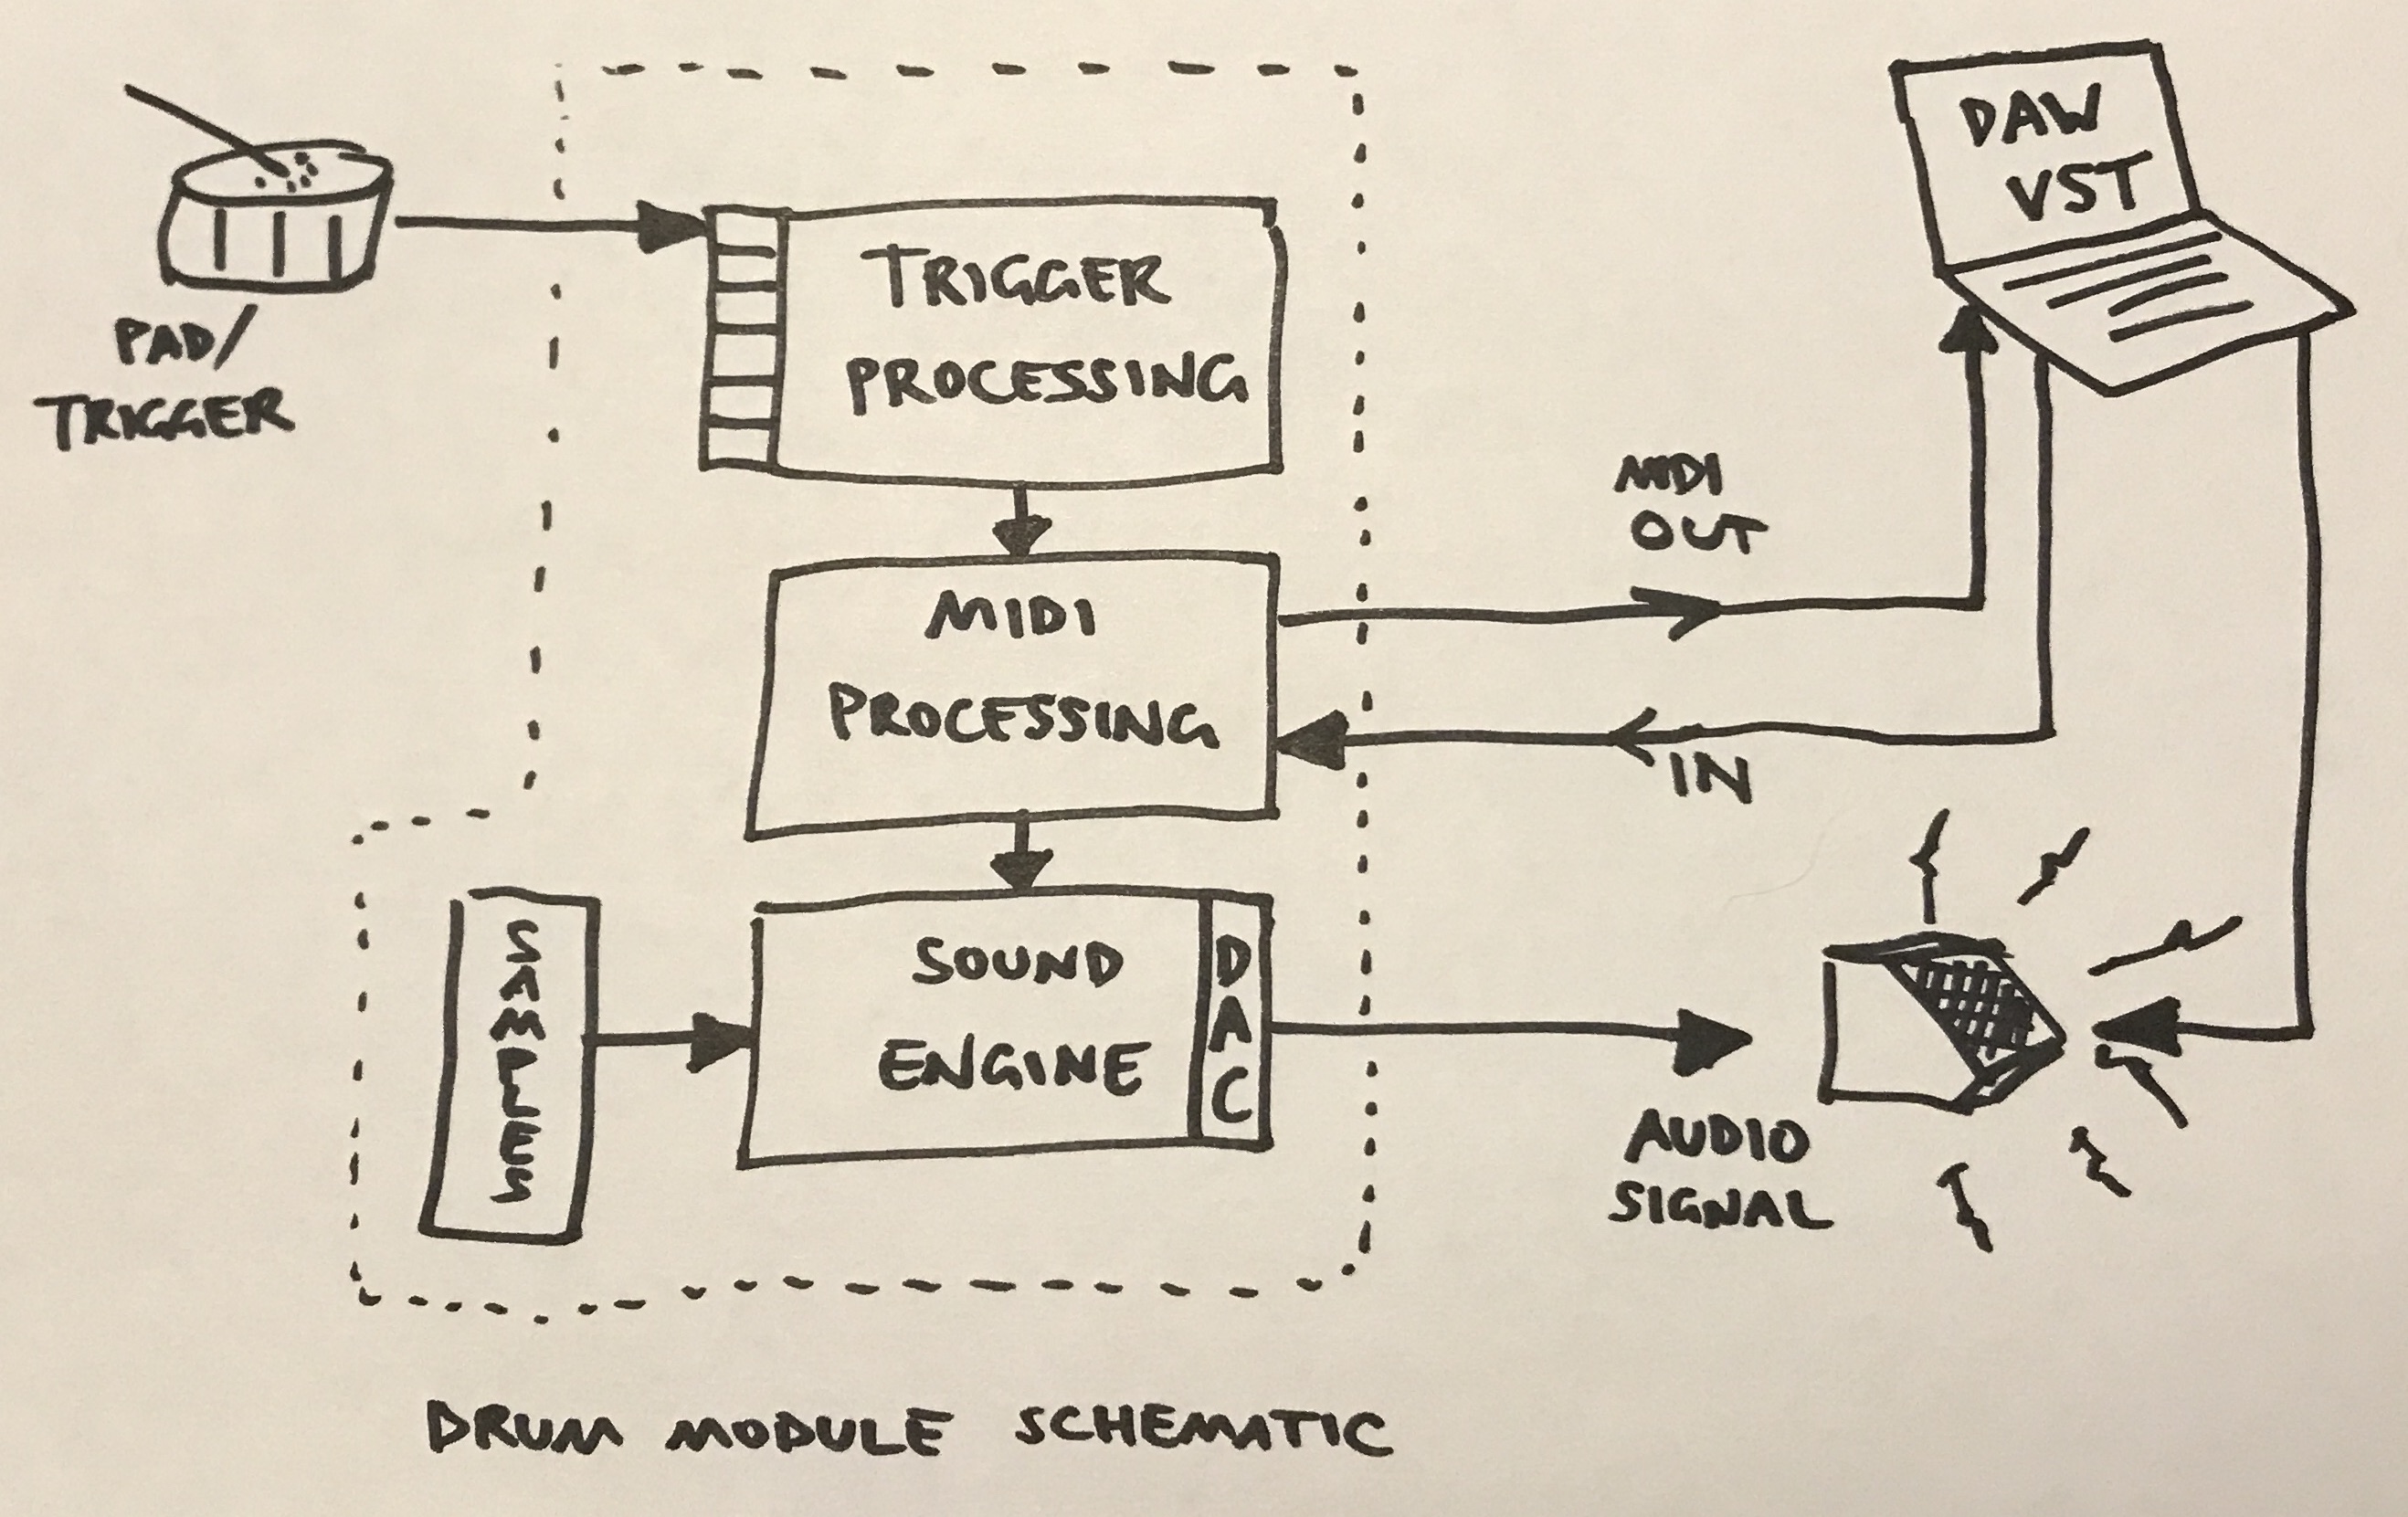 PAD/
TRIGGER
TRIGGER
PROCESSING
DAW
VST
MIDI
OUT
MIDI
PROCESSING
IN
SAMPLES
SOUND
ENGINE
DAC
AUDIO
SIGNAL
DRUM MODULE SCHEMATIC